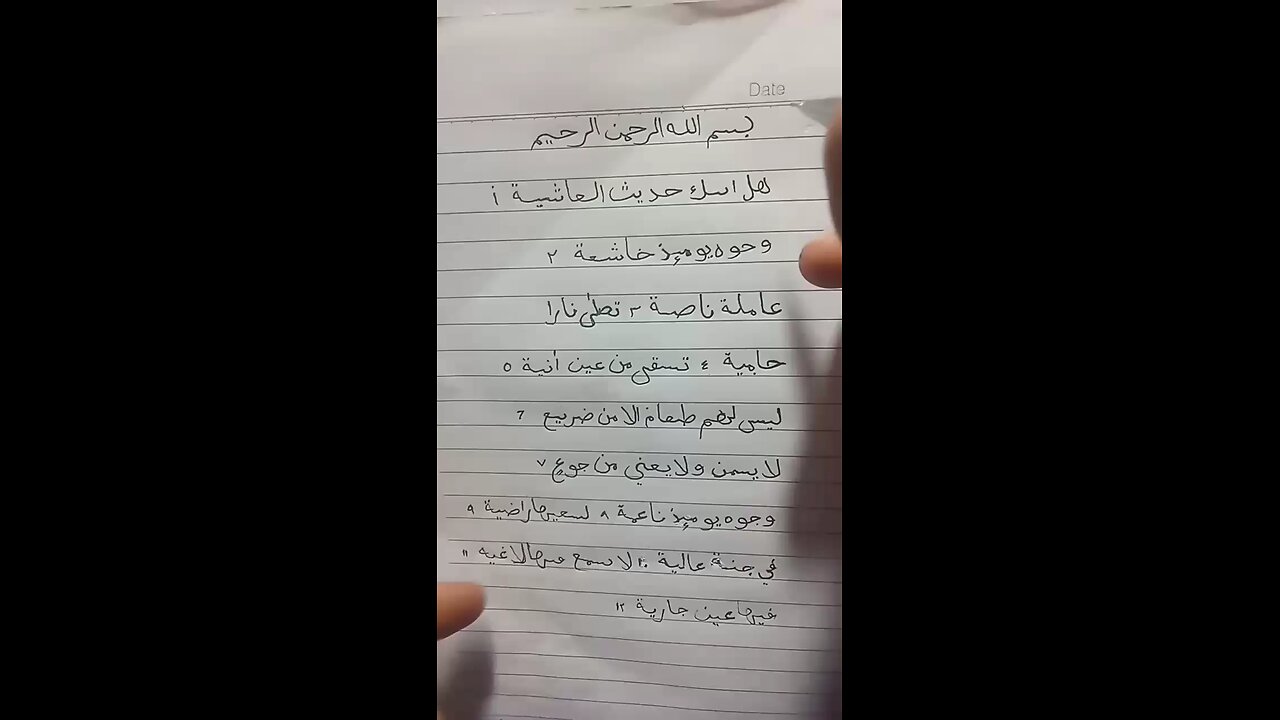 Date
بسم الله الرحمن الرحيم
هل اسك حديث العاشية ١
وحوه يوميذ خاشعة ٢
عاملة ناصة ٣ تطلى نارا
حامية ٤ تسقى من عين أنية ٥
ليس لهم طعام الا من ضريع ٦
لا يسمن ولا يعني من جوع ٧
وجوه يوميذ ناعمة ٨ لسعيها راضية ٩
في جنة عالية ١٠ لا سمع فيها لاغيه ١١
فيها عين جارية ١٢